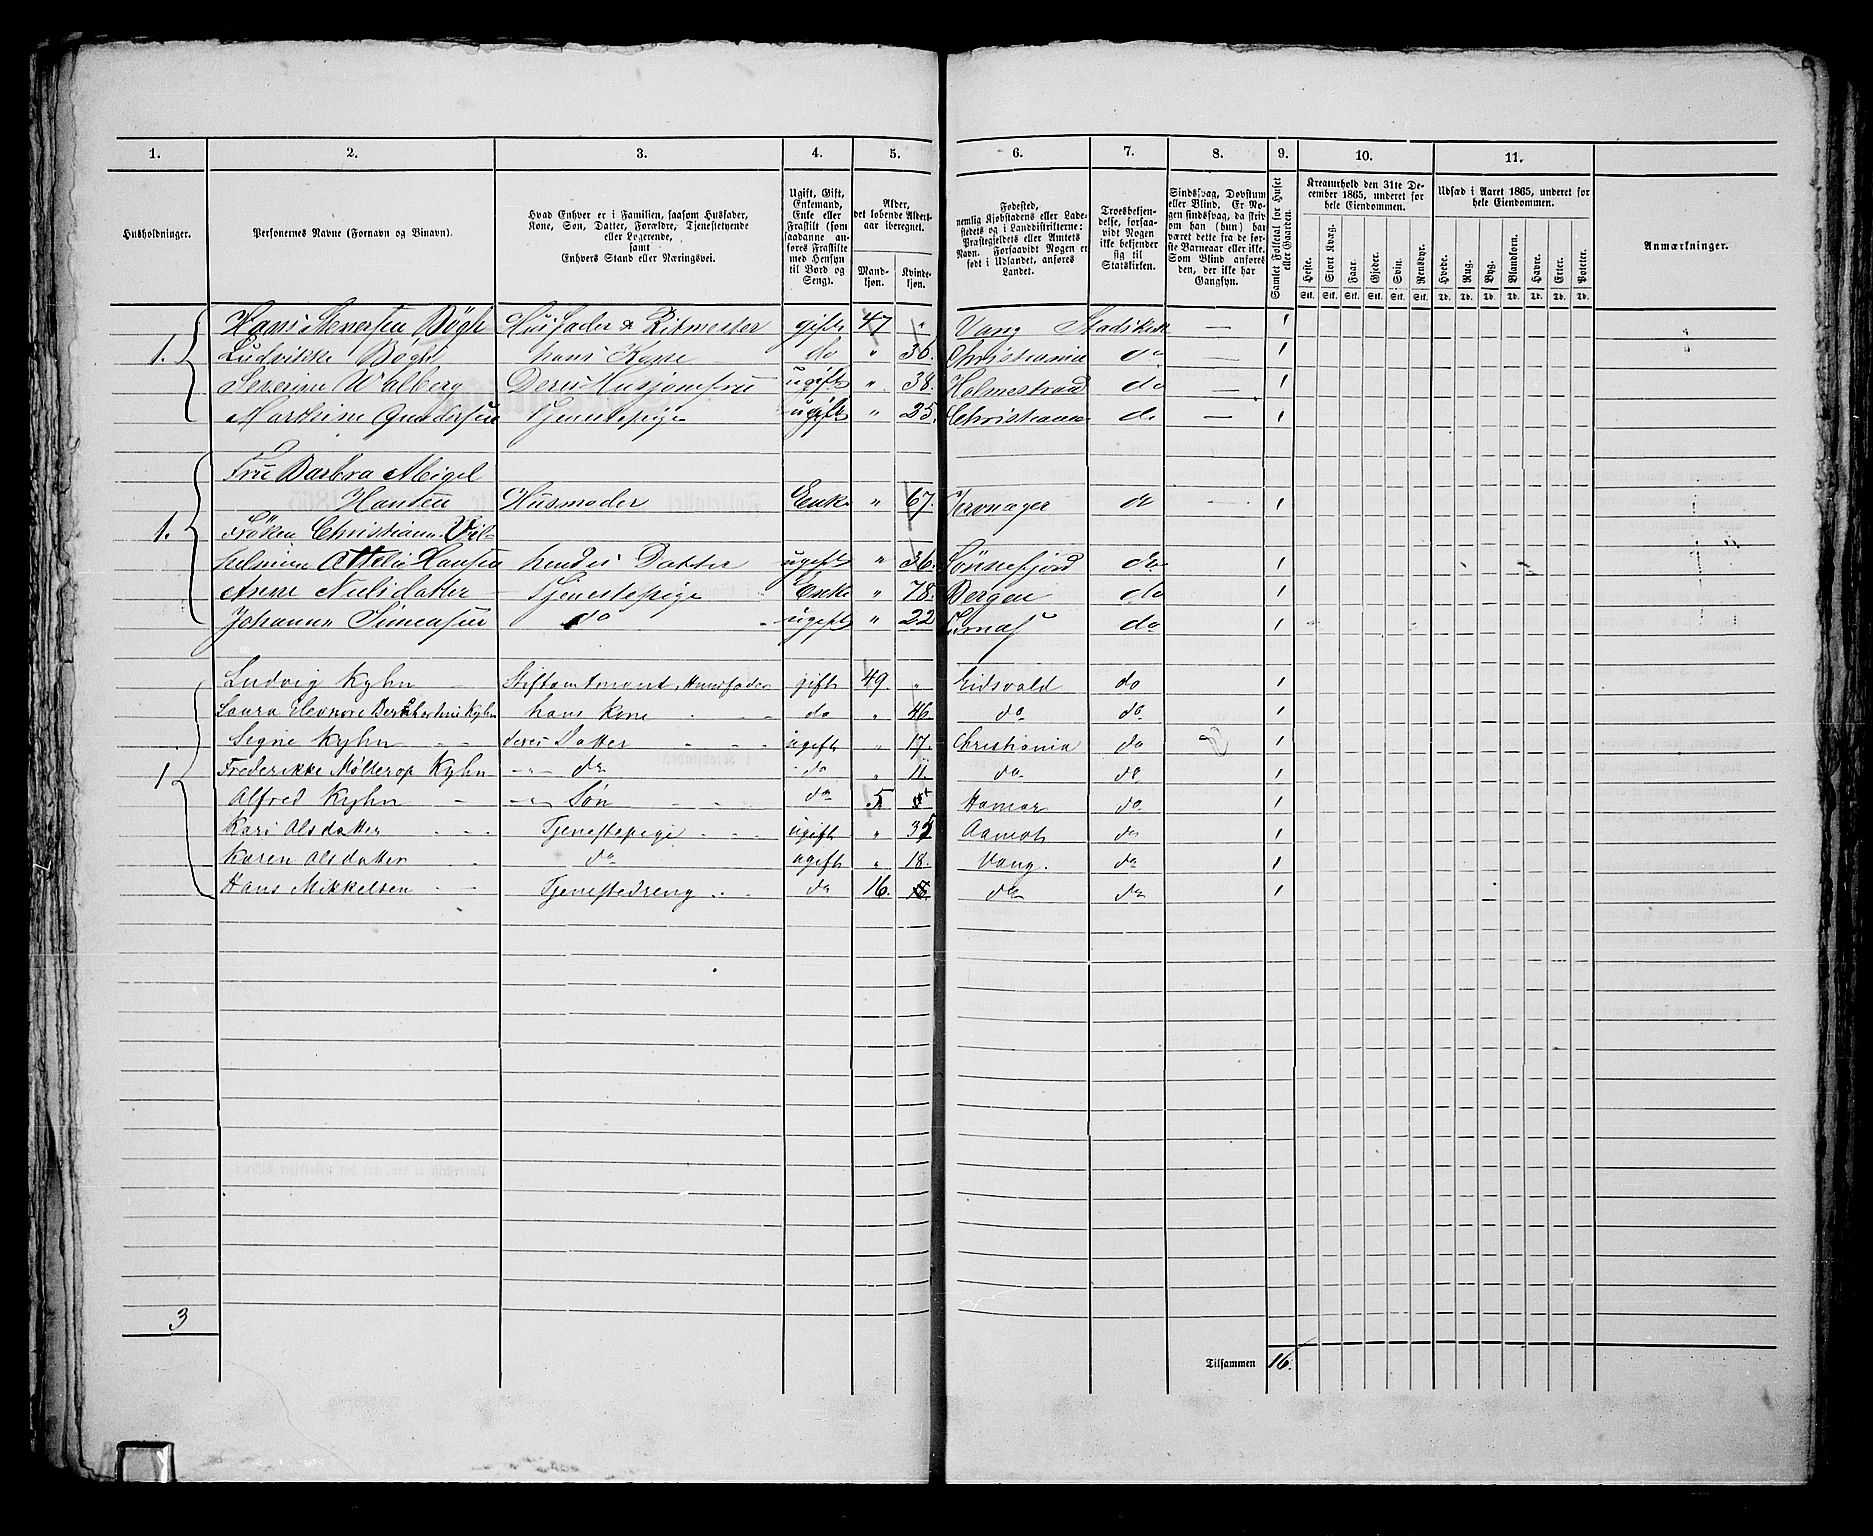 1. 2. 3. 4. 5. 6. 7. 8. 9. 10. 11.
Husholdninger.
Personernes Navne (Fornavn og Binavn).
Hvad Enhver er i Familien, saasom Husfader,
Kone, Søn, Datter, Forældre, Tjenestetyende
eller Logerende,
samt
Enhvers Stand eller Næringsvei.
Ugift, Gift,
Enkemand,
Enke eller
Fraskilt (som
saadanne an-
føres Fraskilte
med Hensyn
til Bord og
Seng).
Alder,
det løbende Alders-
aar iberegnet.
Mand-
kjøn.
Kvinde-
kjøn.
Fødested,
nemlig Kjøbstadens eller Lade-
stedets og i Landdistrikterne:
Præstegjeldets eller Amtets
Navn. Forsaavidt Nogen er
født i Udlandet, anføres
Landet.
Troesbekjen-
delse, forsaa-
vidt Nogen
ikke bekjender
sig til
Statskirken.
Sindssvag, Døvstum
eller Blind. Er No-
gen sindssvag, da skriv
om han (hun) har
været dette fra de før-
ste Barneaar eller ikke.
Som Blind anføres
den, der ikke har
Gangsyn.
Samlet Folketal for Huset
eller Gaarden.
Kreaturhold den 31te De-
cember 1865, underet for
hele Eiendommen.
Heste. Stort Kvæg. Faar. Gjeder. Svin. Rensdyr.
Stk. Stk. Stk. Stk. Stk. Stk.
Udsæd i Aaret 1865, underet for
hele Eiendommen.
Hvede. Rug. Byg. Blandkorn. Havre. Erter. Poteter.
Td. Td. Td. Td. Td. Td. Td.
Anmærkninger.
Hans Stenersen Bøgh Husfader & Ritmester gift 47 " Vang Statskirk — 1
1. Ludvikke Bøgh hans Kone do " 36. Christiania do — 1
Severine Walberg Deres Husjomfru ugift " 38. Holmestrand do — 1
Marthine Gundersen Tjenestepige ugift " 25. Christiania do — 1
Fru Barbra Meigel
Hansen Husmoder Enke " 67. do - 1
1. Frøken Christiane Vil-
helmine Ottilie Hansen hendes Datter ugift " 36. Søndfjord do 1
Anne Nielsdatter — Tjenestepige Enke " 78. Bergen do 1
Johanne Simensen do ugift " 22 do 1
Ludvig Kyhn Stiftamtmand, Huusfader gift 49. " Eidsvold do 1
Laura Eleonore Kyhn hans Kone do " 46. do do 1
Segne Kyhn deres Datter ugift " 17. Christiania do 1
1 Frederikke Møllerop Kyhn — " — do do " 11. do do 1
Alfred Kyhn — " — Søn do 5 Hamar do 1
Kari Olsdatter Tjenestepige ugift " 35 Aamot do 1
Karen Olsdatter do ugift " 18. Vang. do 1
Hans Mikkelsen Tjenestedreng do 16. do do 1
3
Tilsammen 16.